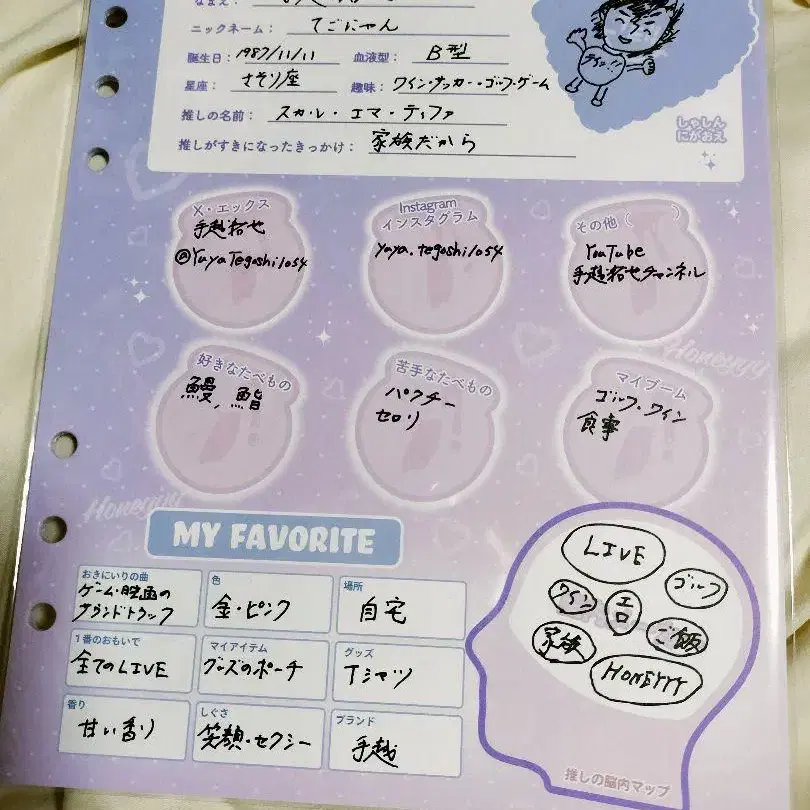 なまえ：
ニックネーム： てごにゃん
誕生日：1987/11/11 血液型： B型
星座： さそり座 趣味： ワイン・サッカー・ゴルフ・ゲーム
推しの名前： スカル・エマ・ティファ
推しがすきになったきっかけ： 家族だから
しゃしん
にがおえ
X・エックス
手越祐也
@YuyaTegoshi1054
Instagram
インスタグラム
yuya.tegoshi1054
その他（ ）
YouTube
手越祐也チャンネル
好きなたべもの
鰻,鮨
苦手なたべもの
パクチー
セロリ
マイブーム
ゴルフ・ワイン
食事
Honeyyy
Honeyyy
MY FAVORITE
おきにいりの曲
ゲーム・映画の
サウンドトラック
色
金・ピンク
場所
自宅
1番のおもいで
全てのLIVE
マイアイテム
グッズのポーチ
グッズ
Tシャツ
香り
甘い香り
しぐさ
笑顔・セクシー
ブランド
手越
LIVE
ゴルフ
ワイン
エロ
家族
ご飯
HONEYYY
推しの脳内マップ